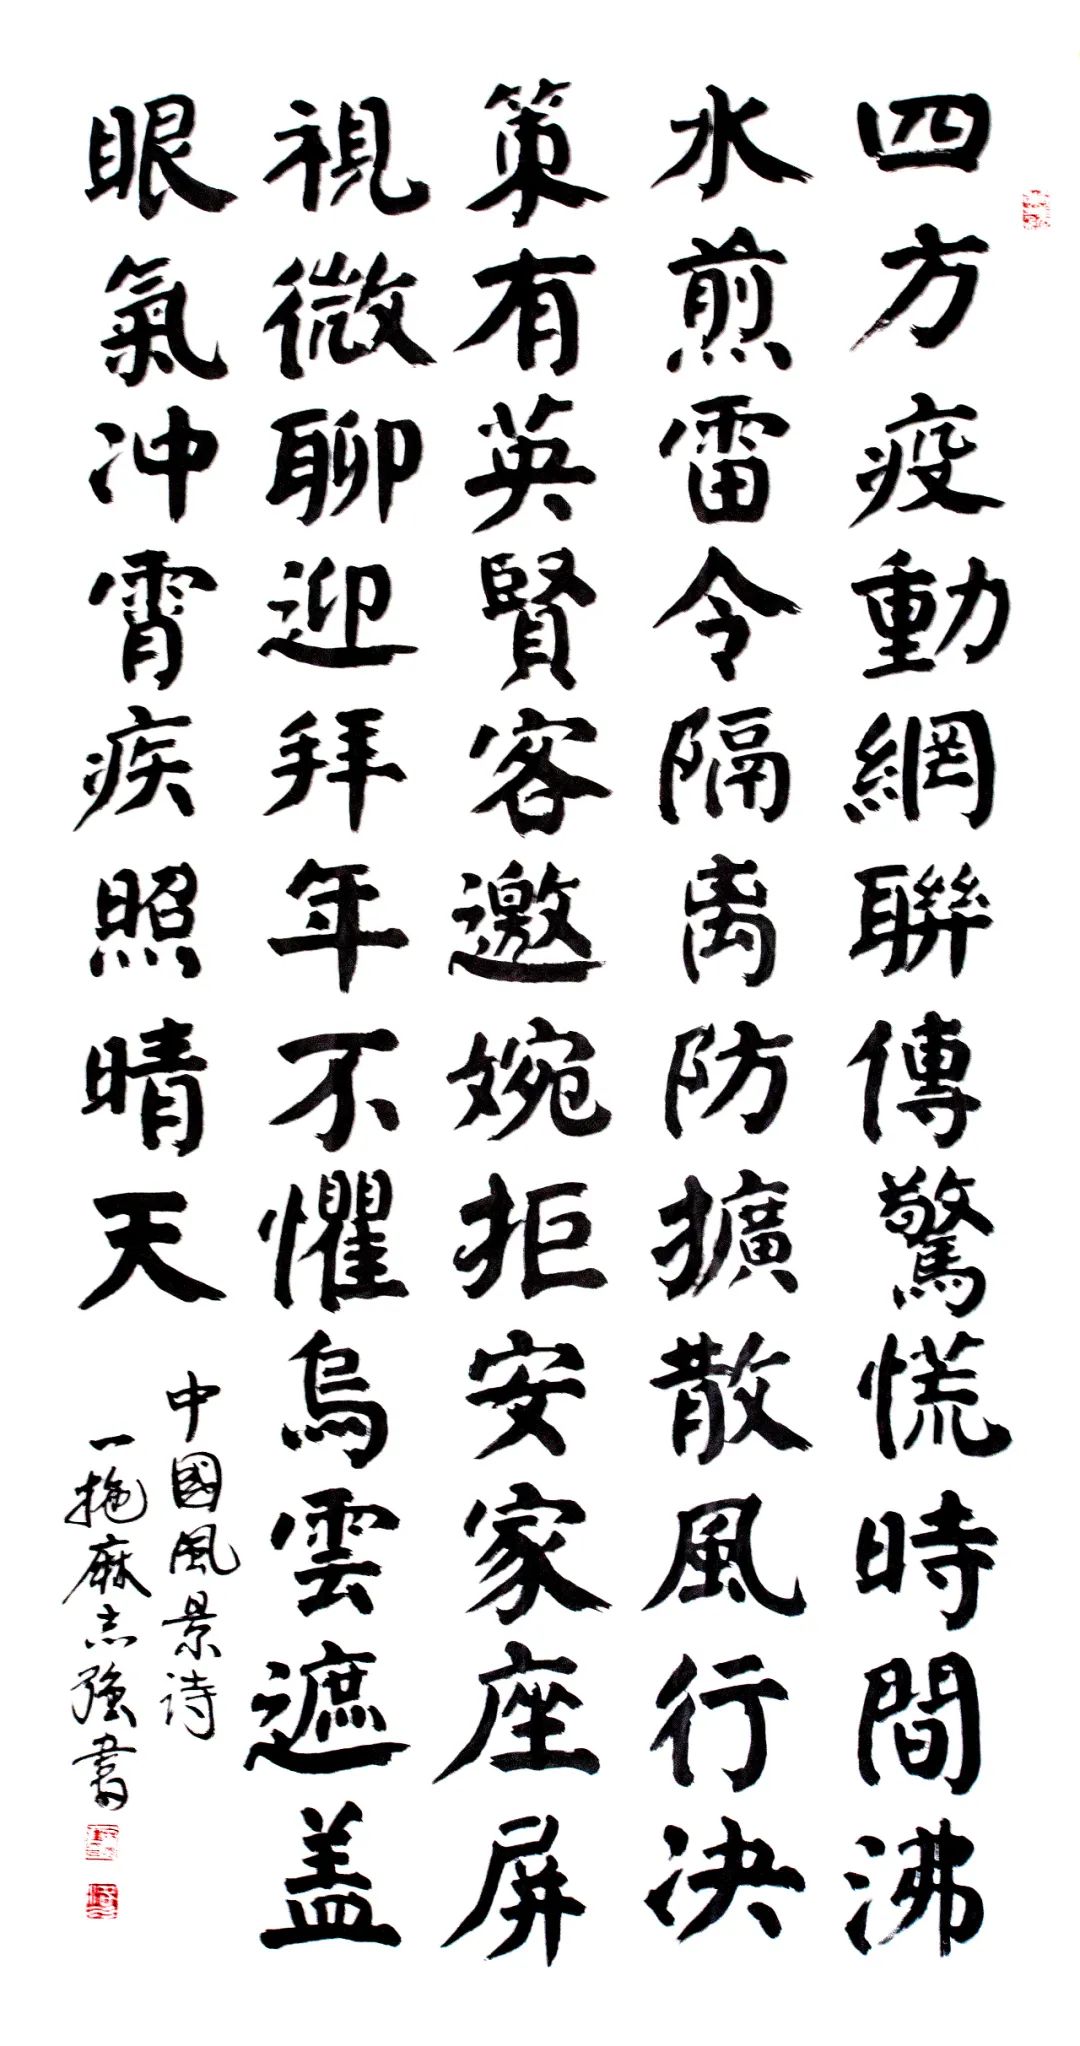 四方疫動網聯傳驚慌時間沸
水煎雷令隔离防擴散風行决
策有英賢客邀婉拒安家座屏
視微聊迎拜年不懼烏雲遮盖
眼氣冲霄疾照晴天
中國风景诗
一拖麻志强書